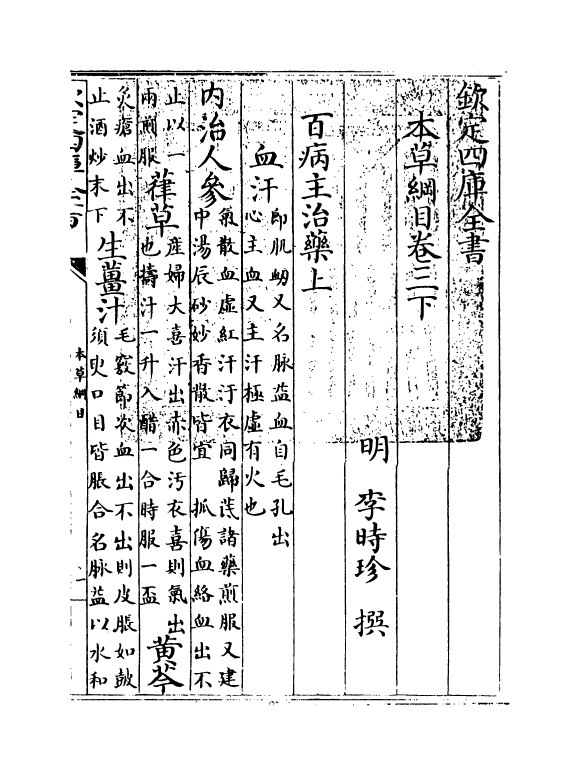 欽定四庫全書
本草綱目卷三下
明 李時珍 撰
百病主治藥上
血汗 即肌衂又名脉益血自毛孔出心主血又主汗極虛有火也
内治人參 氣散血虛紅汗汙衣同歸芪諸藥煎服又建中湯辰砂妙香散皆宜 抓傷血絡血出不
止以一兩煎服 葎草 産婦大喜汗出赤色污衣喜則氣出也擣汁一升入醋一合時服一盃 黄芩
灸瘡血出不止酒炒末下 生薑汁 毛竅節次血出不出則皮脹如鼓須臾口目皆脹合名脉益以水和
本草綱目